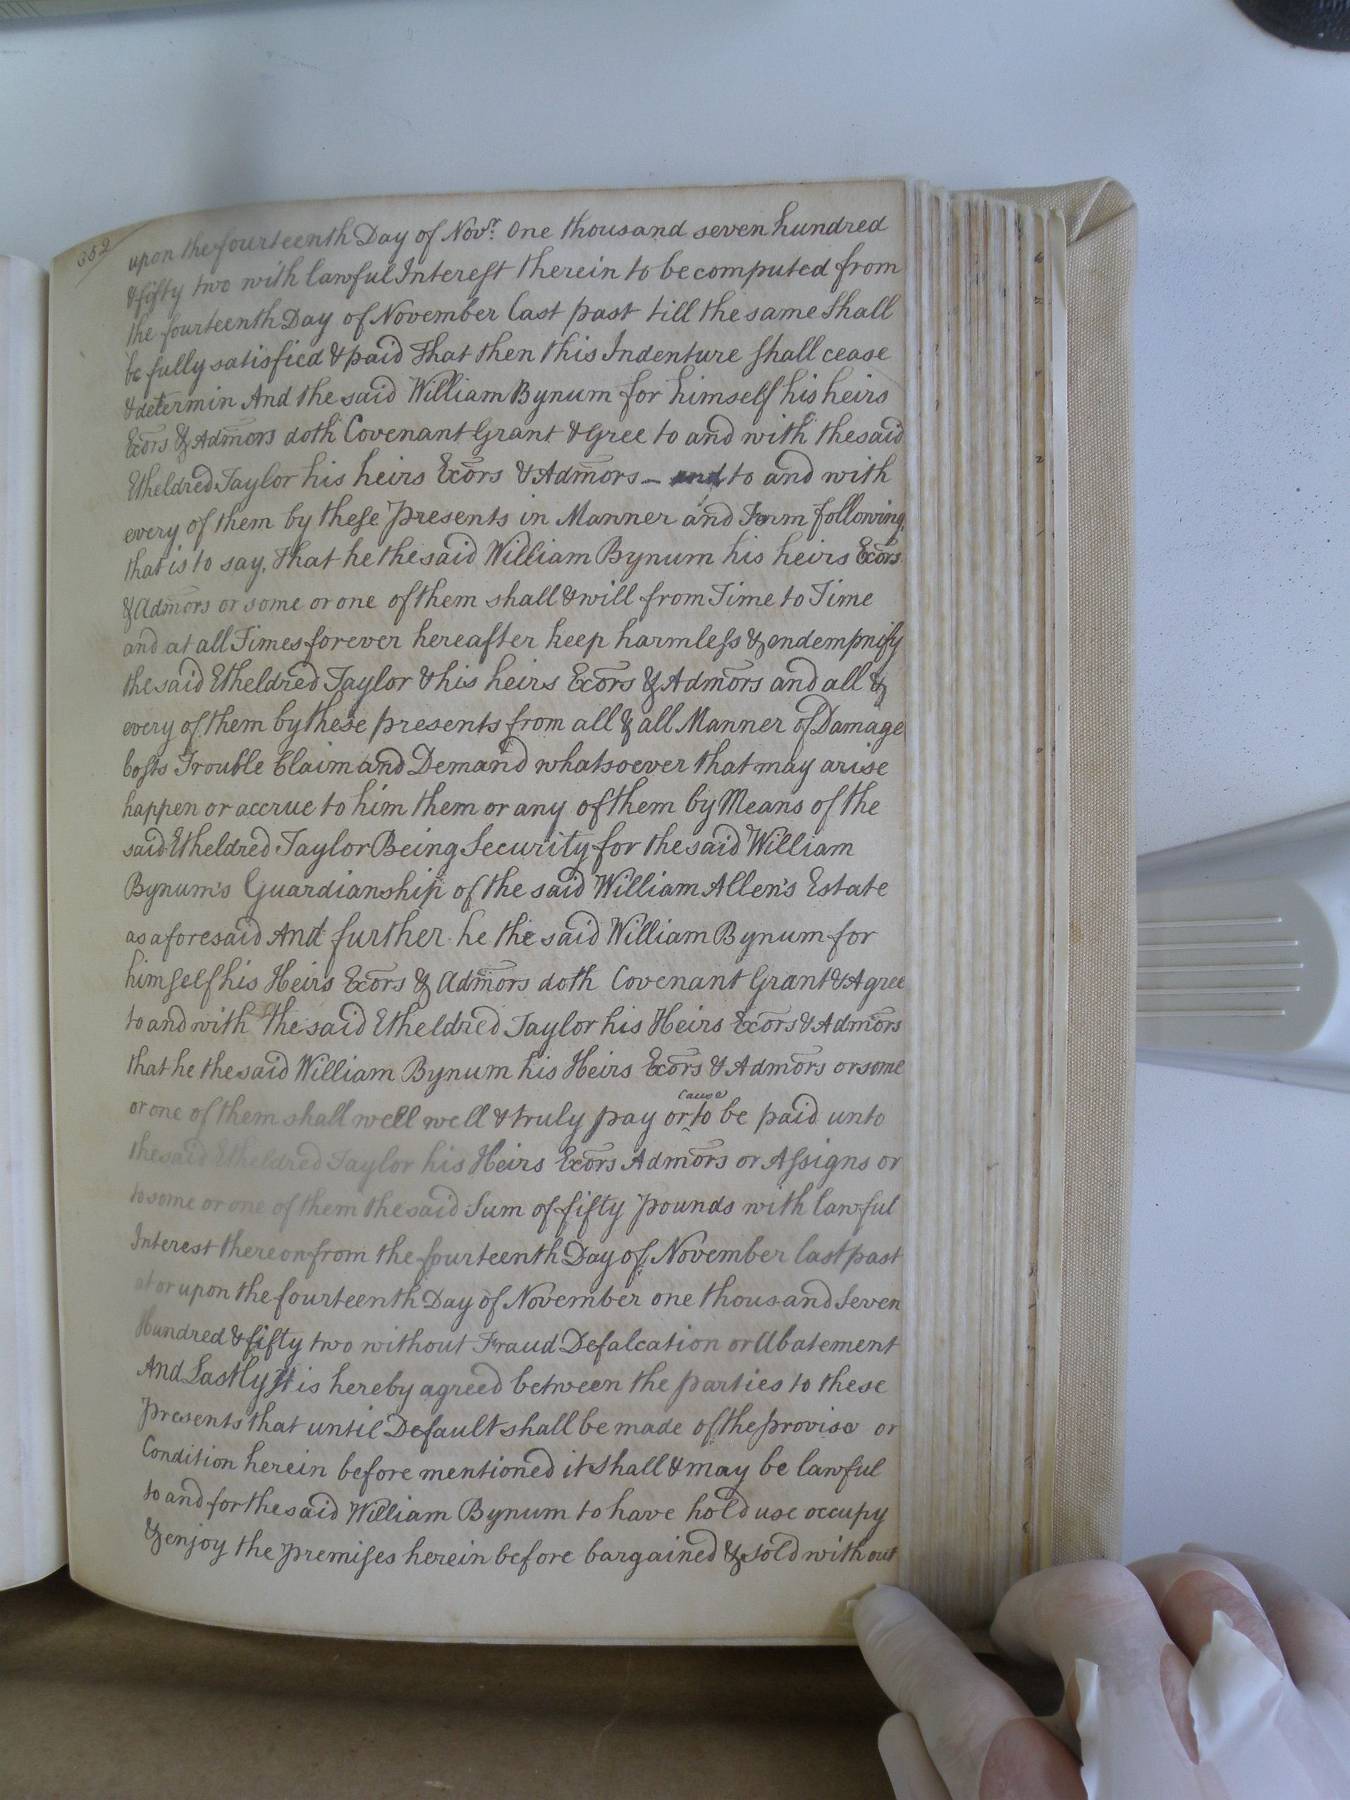 352
upon the fourteenth Day of Novr. One thousand seven hundred
& fifty two with lawful Interest therein to be computed from
the fourteenth Day of November last past till the same shall
be fully satisfied & paid That then this Indenture shall cease
& determin And the said William Bynum for himself his heirs
Exōrs & Admōrs doth Covenant Grant & Gree to and with the said
Etheldred Taylor his heirs Exōrs & Admōrs – and to and with
every of them by these Presents in Manner and Form following
that is to say, That he the said William Bynum his heirs Exōrs
& Admōrs or some or one of them shall & will from Time to Time
and at all Times forever hereafter keep harmless & endempnify
the said Etheldred Taylor & his heirs Exōrs & Admōrs and all &
every of them by these presents from all & all Manner of Damage
Costs Trouble Claim and Demand whatsoever that may arise
happen or accrue to him them or any of them by Means of the
said Etheldred Taylor Being Security for the said William
Bynum's Guardianship of the said William Allen's Estate
as aforesaid And further he the said William Bynum for
himself his Heirs Exōrs & Admōrs doth Covenant Grant & Agree
to and with the said Etheldred Taylor his Heirs Exōrs & Admōrs
that he the said William Bynum his Heirs Exōrs & Admōrs or some
or one of them shall well well & truly pay or cause to be paid unto
the said Etheldred Taylor his Heirs Exōrs Admōrs or Assigns or
to some or one of them the said Sum of fifty Pounds with lawful
Interest thereon from the fourteenth Day of November last past
at or upon the fourteenth Day of November one thousand Seven
Hundred & fifty two without Fraud Defalcation or Abatement
And Lastly It is hereby agreed between the parties to these
Presents that until Default shall be made of the proviso or
Condition herein before mentioned it shall & may be lawful
to and for the said William Bynum to have hold use occupy
& enjoy the Premises herein before bargained & sold without